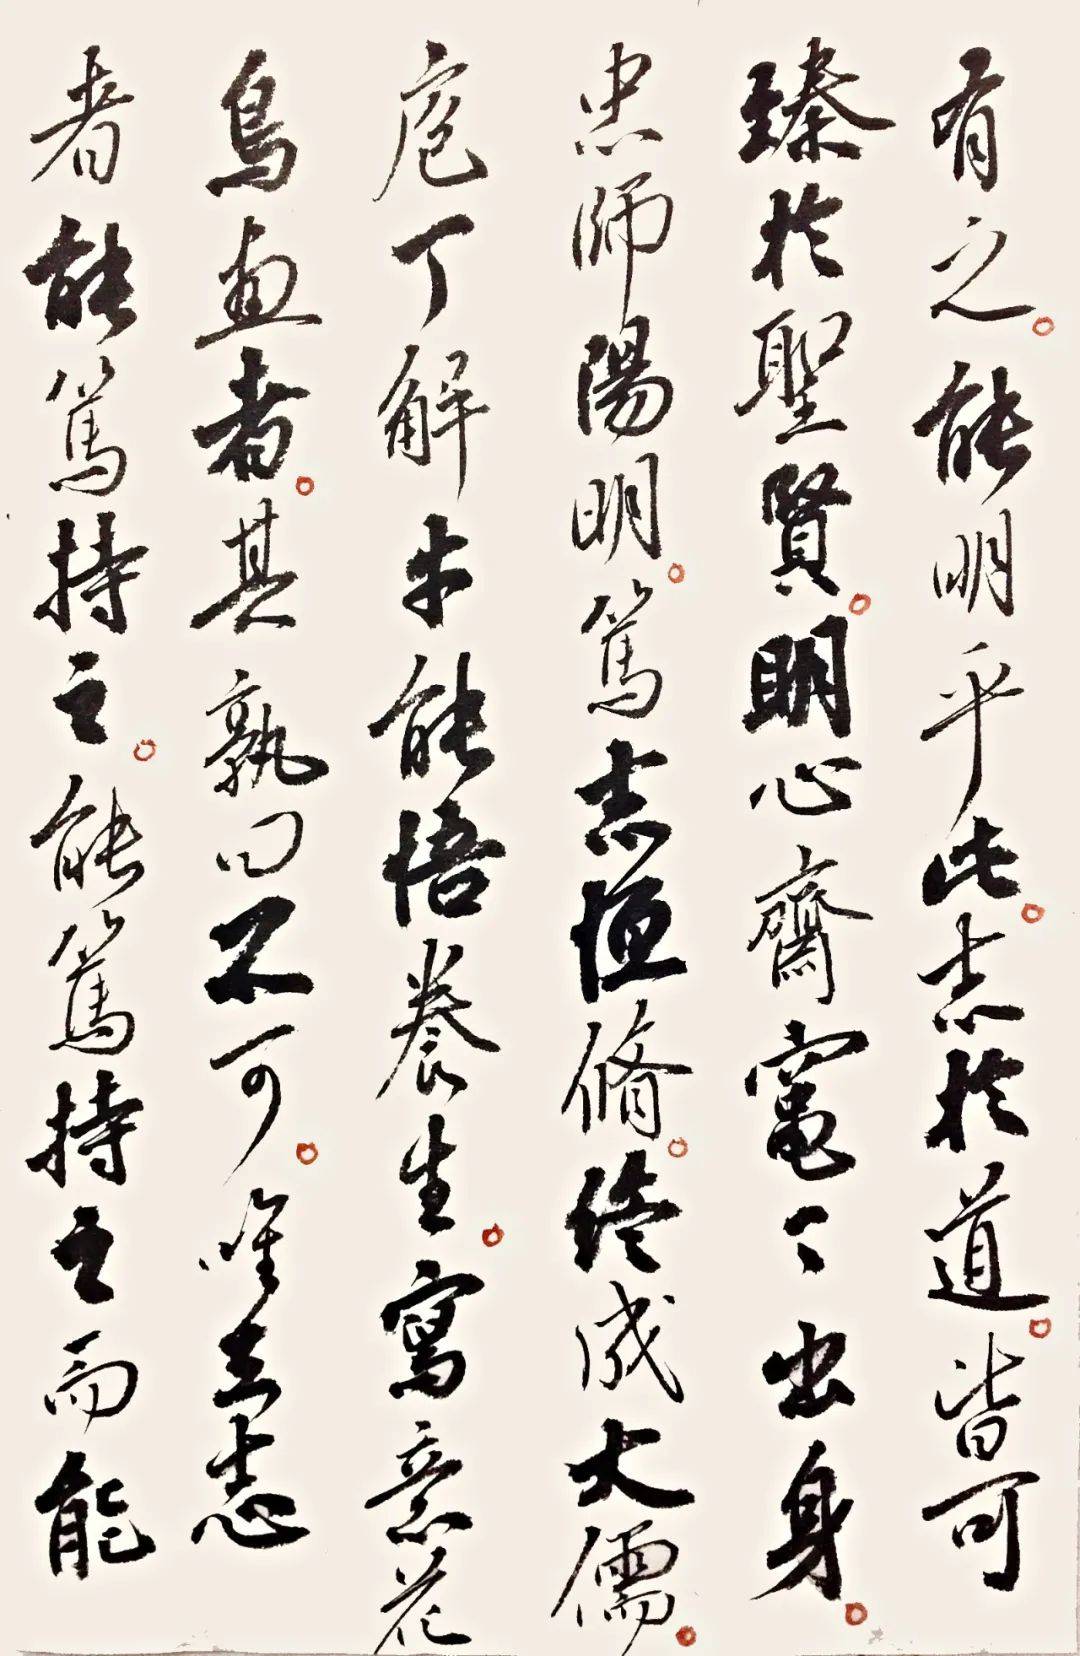 有之。能明乎此。志於道。皆可
臻於聖賢。明心齋竈丁出身。
忠師陽明。篤志恒脩。終成大儒。
庖丁解牛能悟養生。寫意花
鳥畫者。其孰曰不可。唯立志
者能篤持之。能篤持之而能